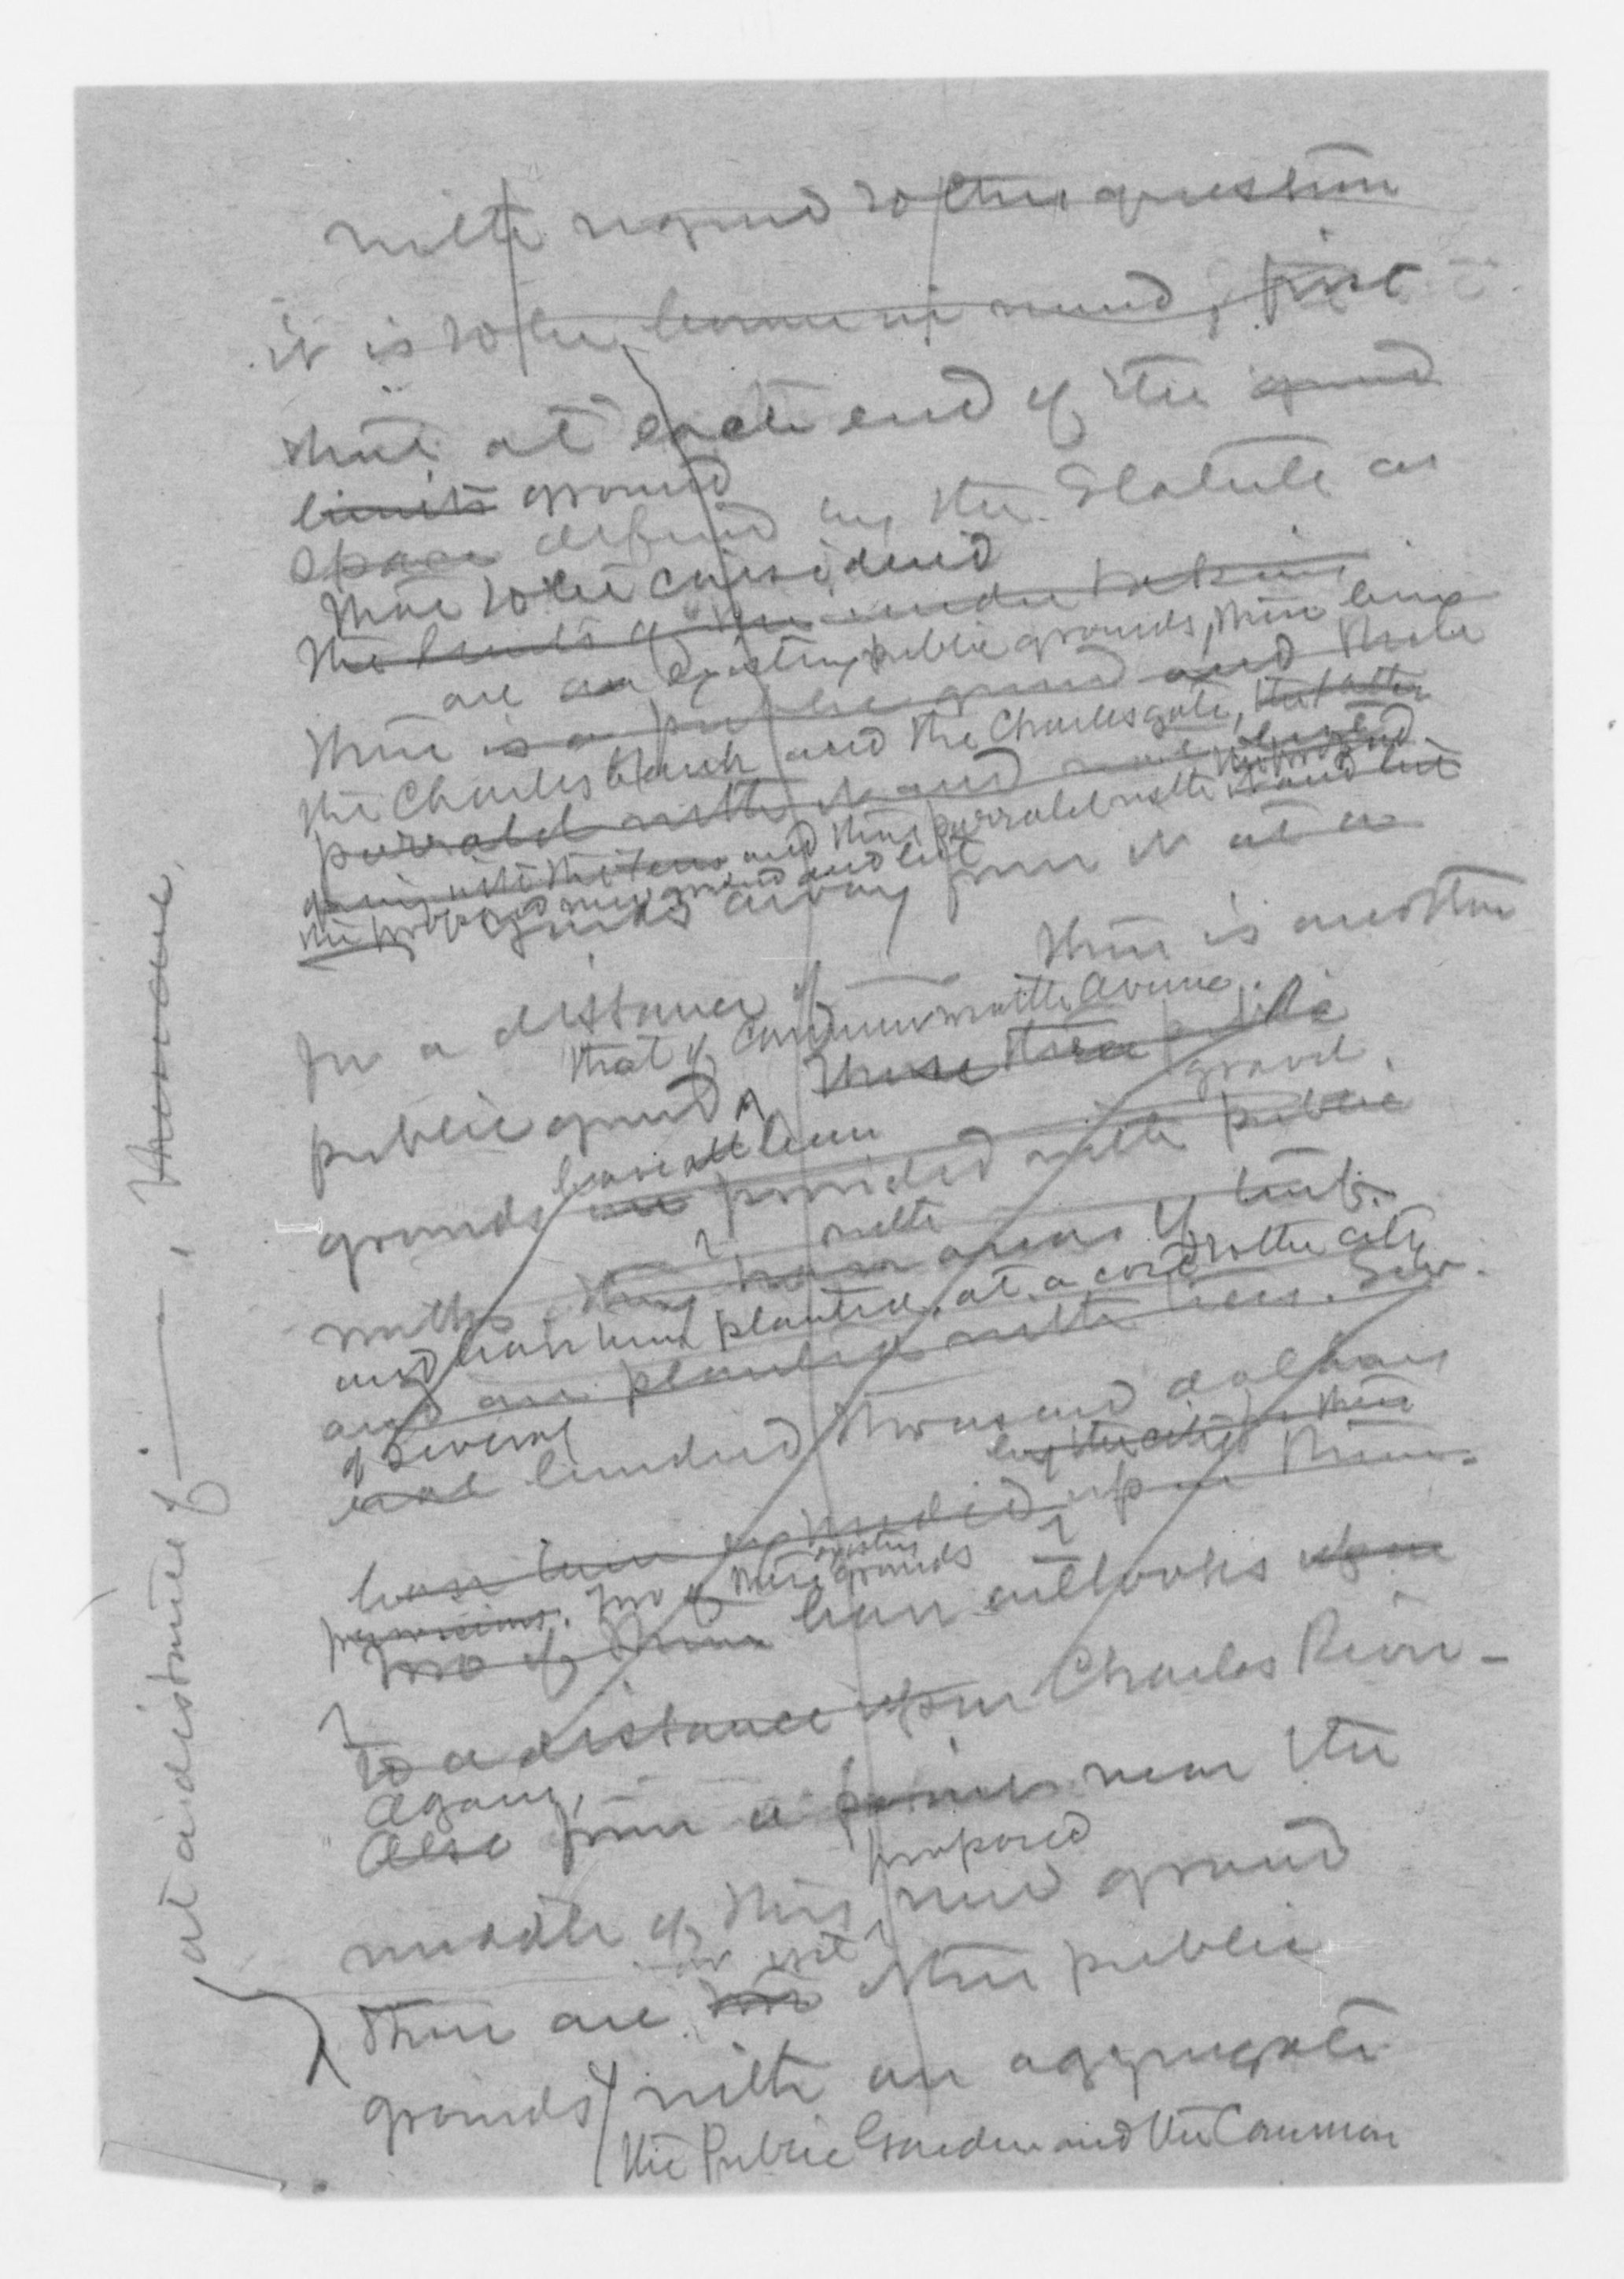 with regard to this question
it is to be borne in mind, first
that at each end of the ground
limits ground
space defined by the Statute as
that to be considered
the limits of the undertaking
are an existing public grounds, there being
there is a public ground and these
the Charlesbank and the Charlesgate, the latter
parralel with it and
going into the Fens and this parralel with it and but
the proposed new ground and but
away from it at a
for a distance of there is another
that of Commonwealth Avenue.
public ground, These three public
gravel
grounds have all been
are provided with public
walks, they have areas of turf
with
and have been planted, at a cost to the city
and are planted with trees. Sev-
of several
eral hundred thousand dollars
by the city
have been expended upon them.
existing
provisions. Two of these grounds
Two of them have outlooks upon
to a distance upon Charles River-
Again,
Also from a point near the
proposed
middle of this new ground
there are two other public
grounds with an aggregate
the Public Garden and the Common
at a distance of ——,